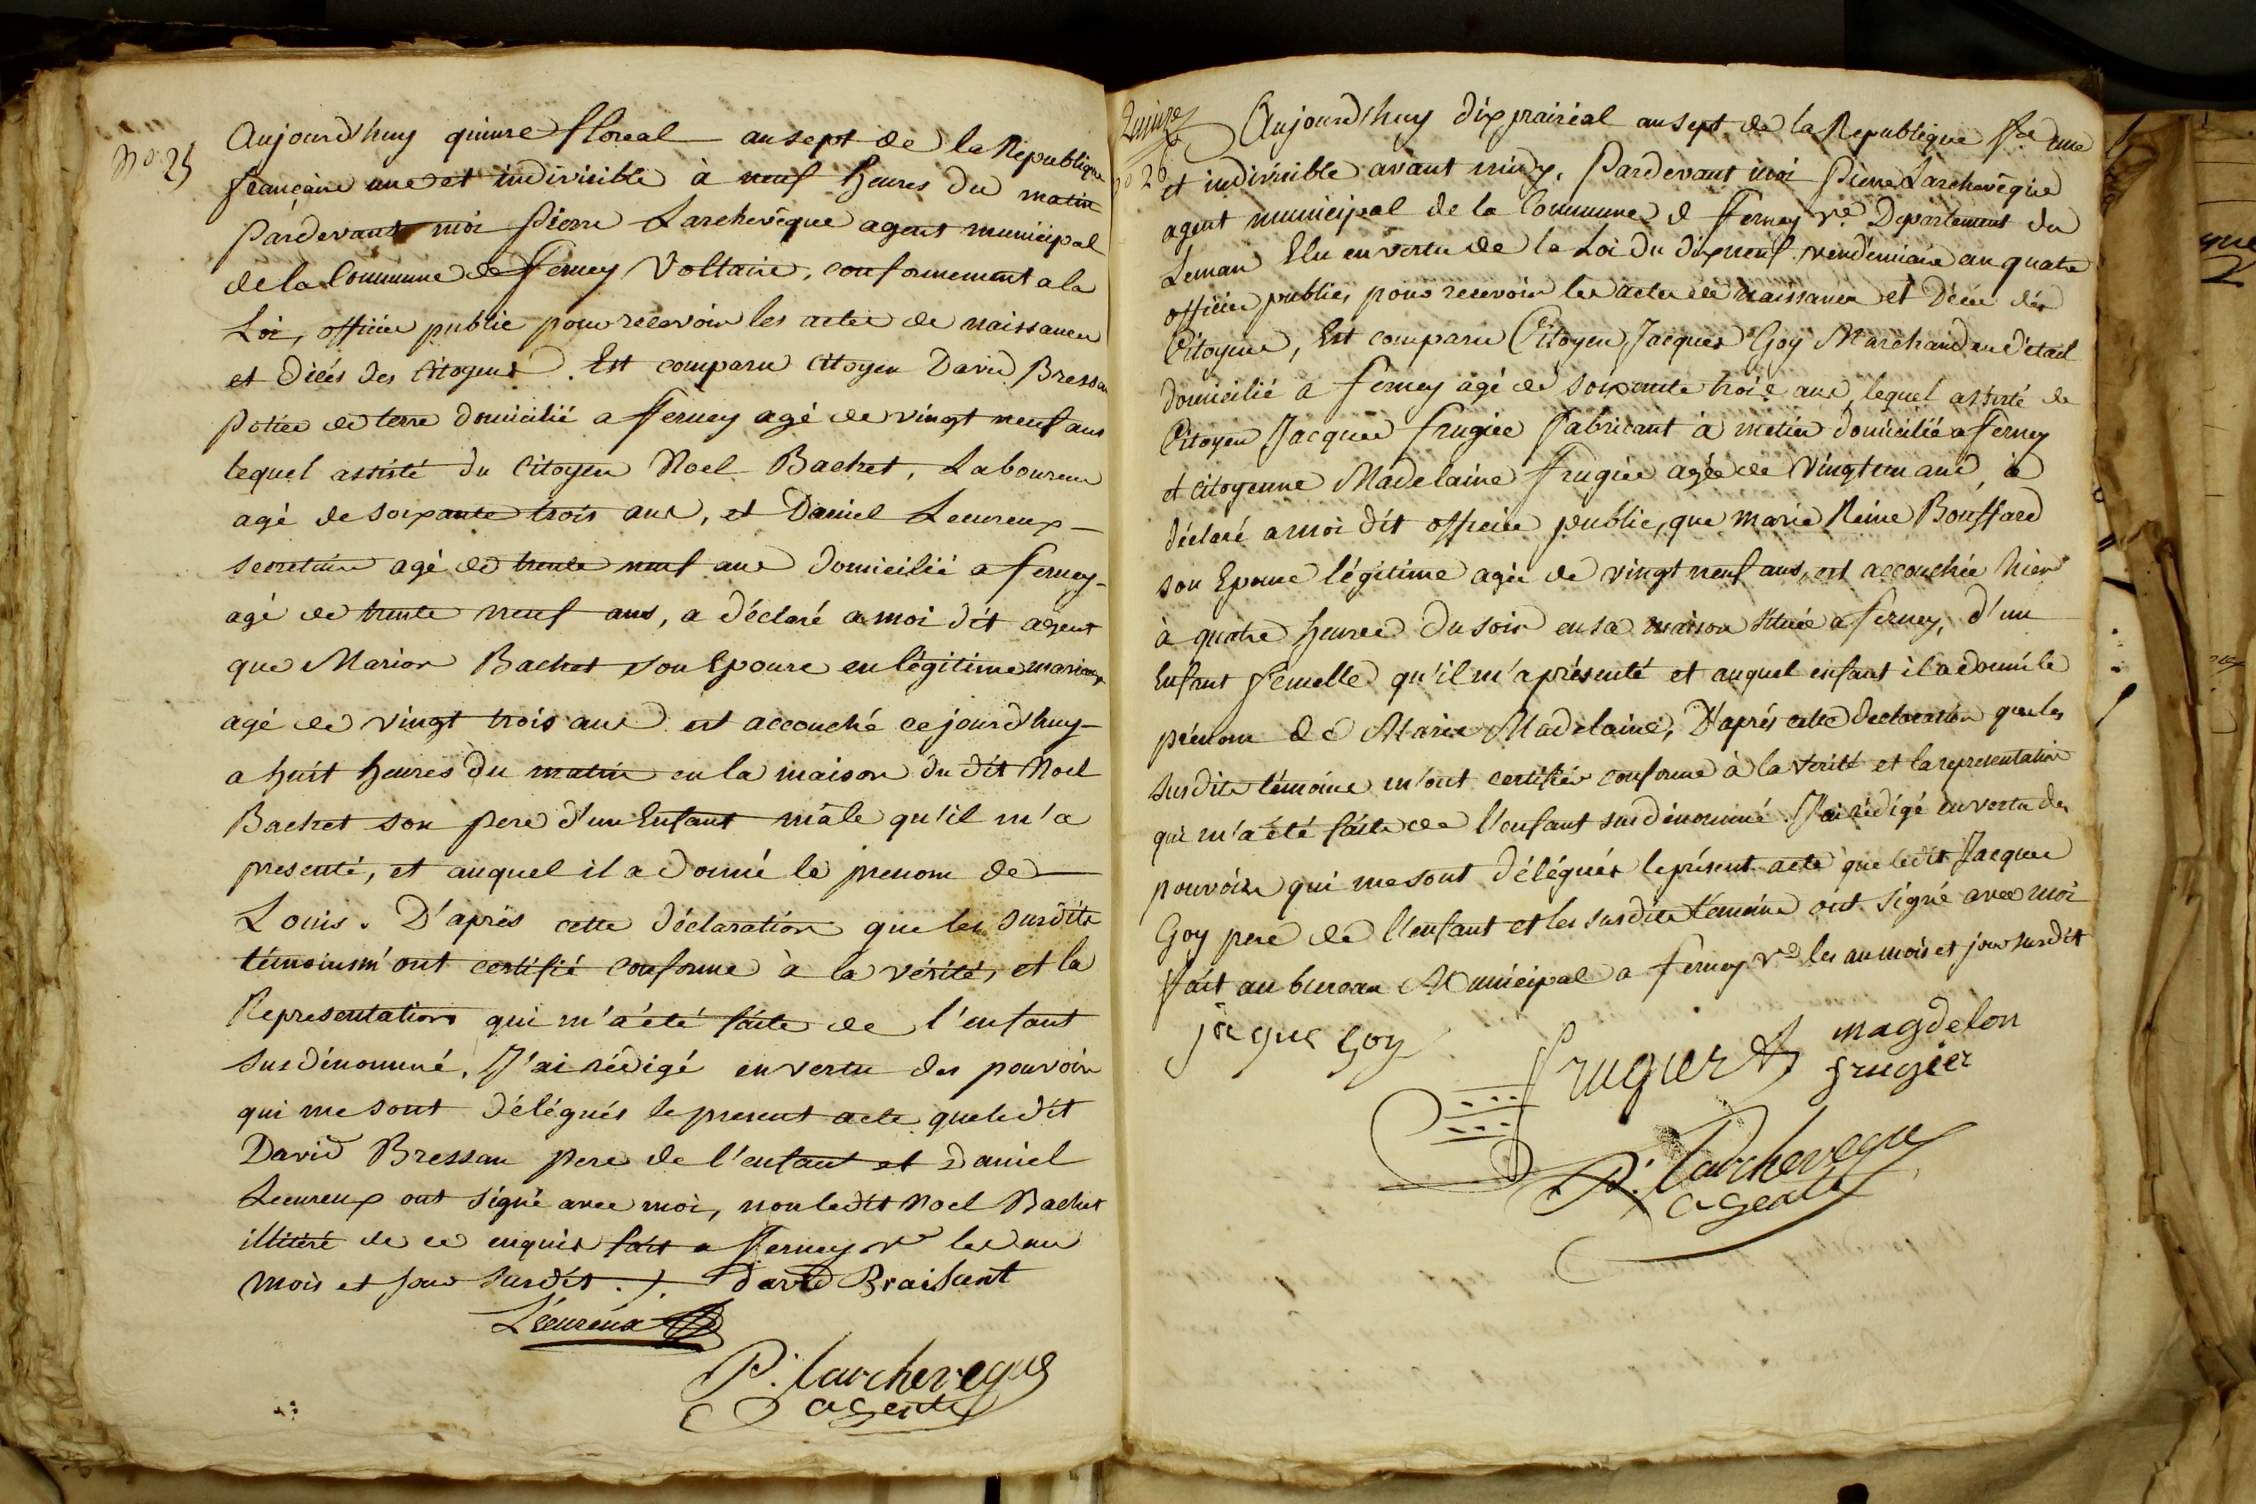 No. 25
Aujourd'huy quinze floreal an sept de la Republique
francaise une et indivisible à neuf heures du matin
Pardevant moi Pierre Larchevêque agent municipal
de la Commune de Ferney Voltaire, conformement a la
Loi, officier public pour recevoir les actes de naissances
et décés des Citoyens. Est comparu Citoyen David Bressan
Potier de terre domicilié a Ferney agé de vingt neuf ans
lequel assisté du Citoyen Noel Bachet, Laboureur
agé de soixante trois ans, et Daniel Lecureux
secretaire agé de trente neuf ans domicilié a ferney
agé de trente neuf ans, a déclaré a moi dit agent
que Marion Bachet son Epouse en légitime mariage
agé de vingt trois ans est accouché ce jourd'huy
a huit heures du matin en la maison du dit Noel
Bachet son pere d'un Enfant mâle qu'il m'a
presenté, et auquel il a donné le prenom de
Louis. D'après cette déclaration que les susdits
témoins m'ont certifié conforme à la vérité, et la
Representation qui m'a été faite de l'enfant
susdénommé, J'ai rédigé en vertu des pouvoirs
qui me sont délégués le present acte que le dit
David Bressan pere de l'enfant et Daniel
Lecureux ont signé avec moi, non ledit Noel Bachet
illitéré de ce enquis fait a Ferney Vre les an
mois et jour susdit. David Braisant
Lécureux
P. Larcheveque
agent
No 26
Aujourd'huy dix prairial an sept de la Republique fse une
et indivisible avant midy, Pardevant moi Pierre Larchevêque
agent municipal de la Commune d Ferney Vre Departement du
Leman Elu en vertu de la Loi du dix neuf vendemiaire an quatre
officier public, pour recevoir les actes de naissances et Décés des
Citoyens, Est comparu Citoyen Jacques Goy Marchand en détail
domicilié a ferney agé de soixante trois ans, lequel assisté de
Citoyen Jacques frugier Fabricant à metier domicilié a ferney
et citoyenne Madelaine Frugier agée de vingt un ans, a
déclaré a moi dit officier public, que marie Reine Bouffard
son Epouse légitime agée de vingt neuf ans, est accouchée hier
à quatre heures du soir en sa maison située a ferney, d'un
Enfant femelle qu'il m'a présenté et auquel enfant il a donné le
prénom de Marie Madelaine, D'après cette declaration que les
susdits témoins m'ont certifiés conforme à la vérité et la representation
qui m'a été faite de l'enfant susdénommé. J'ai rédigé en vertu des
pouvoirs qui me sont délégués le présent acte que le dit Jacques
Goy pere de l'enfant et les susdits témoins ont signé avec moi
fait au bureau Municipal a ferney Vre les an mois et jour susdit
jaque Goy
frugier
magdelon
frugier
P. Larcheveque
agent